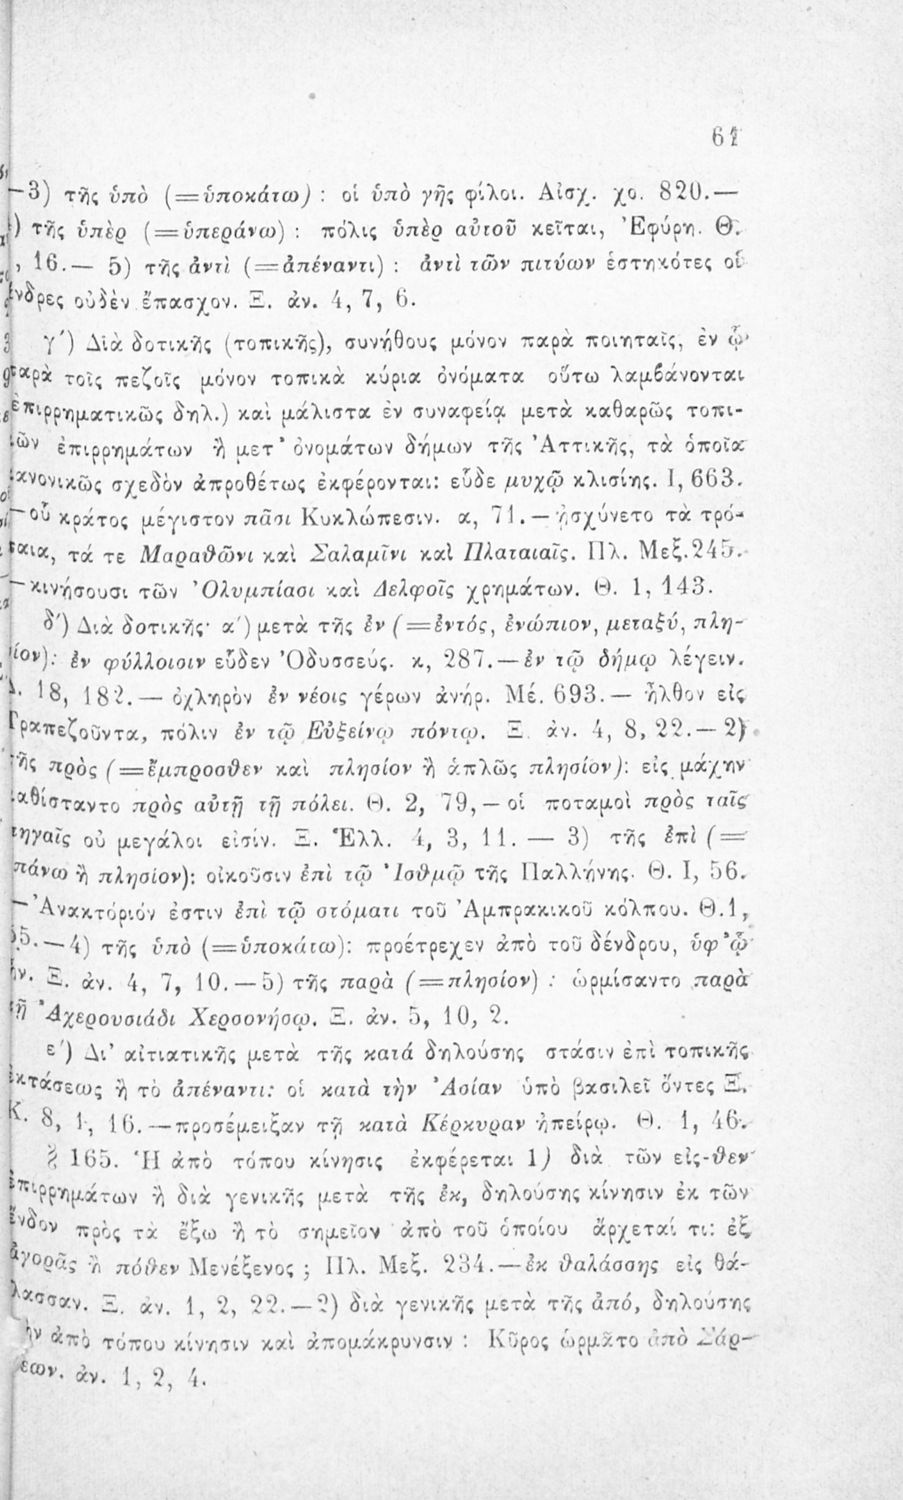 61
—3) τῆς ὑπὸ (=ὑποκάτω) : οἱ ὑπὸ γῆς φίλοι. Αἰσχ. χο. 820.—
) τῆς ὑπὲρ (=ὑπεράνω) : πόλις ὑπὲρ αὐτοῦ κεῖται, Ἐφύρη. Θ.
, 16.— 5) τῆς ἀντὶ (=ἀπέναντι) : ἀντὶ τῶν πιτύων ἑστηκότες οἱ
ἄνδρες οὐδὲν ἔπασχον. Ξ. ἀν. 4, 7, 6.
γ΄) Διὰ δοτικῆς (τοπικῆς), συνήθους μόνον παρὰ ποιηταῖς, ἐν ᾧ
παρὰ τοῖς πεζοῖς μόνον τοπικὰ κύρια ὀνόματα οὕτω λαμβάνονται
ἐπιρρηματικῶς δηλ.) καὶ μάλιστα ἐν συναφείᾳ μετὰ καθαρῶς τοπι-
κῶν ἐπιρρημάτων ἢ μετ᾽ ὀνομάτων δήμων τῆς Ἀττικῆς, τὰ ὁποῖα
κανονικῶς σχεδὸν ἀπροθέτως ἐκφέρονται: εὗδε μυχῷ κλισίης. Ι, 663.
—οὗ κράτος μέγιστον πᾶσι Κυκλώπεσιν. α, 71.—ᾐσχύνετο τὰ τρό-
παια, τά τε Μαραθῶνι καὶ Σαλαμῖνι καὶ Πλαταιαῖς. Πλ. Μεξ.245.
—κινήσουσι τῶν Ὀλυμπίασι καὶ Δελφοῖς χρημάτων. Θ. 1, 143.
δ΄) Διὰ δοτικῆς· α΄) μετὰ τῆς ἐν (=ἐντός, ἐνώπιον, μεταξύ, πλη-
σίον): ἐν φύλλοισιν εὗδεν Ὀδυσσεύς. κ, 287.—ἐν τῷ δήμῳ λέγειν.
18, 182.— ὀχληρὸν ἐν νέοις γέρων ἀνήρ. Μέ. 693.— ἦλθον εἰς
Τραπεζοῦντα, πόλιν ἐν τῷ Εὐξείνῳ πόντῳ. Ξ. ἀν. 4, 8, 22.— 2)
τῆς πρὸς (=ἔμπροσθεν καὶ πλησίον ἢ ἁπλῶς πλησίον): εἰς μάχην
καθίσταντο πρὸς αὐτῇ τῇ πόλει. Θ. 2, 79,— οἱ ποταμοὶ πρὸς ταῖς
πηγαῖς οὐ μεγάλοι εἰσίν. Ξ. Ἑλλ. 4, 3, 11. — 3) τῆς ἐπὶ (=
πάνω ἢ πλησίον): οἰκοῦσιν ἐπὶ τῷ Ἰσθμῷ τῆς Παλλήνης. Θ. Ι, 56.
—Ἀνακτόριόν ἐστιν ἐπὶ τῷ στόματι τοῦ Ἀμπρακικοῦ κόλπου. Θ.1,
55.—4) τῆς ὑπὸ (=ὑποκάτω): προέτρεχεν ἀπὸ τοῦ δένδρου, ὑφ᾽ ᾧ
ἦν. Ξ. ἀν. 4, 7, 10.—5) τῆς παρὰ (=πλησίον) : ὡρμίσαντο παρὰ
τῇ Ἀχερουσιάδι Χερσονήσῳ. Ξ. ἀν. 5, 10, 2.
ε΄) Δι᾽ αἰτιατικῆς μετὰ τῆς κατά δηλούσης στάσιν ἐπὶ τοπικῆς
ἐκτάσεως ἢ τὸ ἀπέναντι: οἱ κατὰ τὴν Ἀσίαν ὑπὸ βασιλεῖ ὄντες Ξ.
Κ. 8, 1, 16.—προσέμειξαν τῇ κατὰ Κέρκυραν ἠπείρῳ. Θ. 1, 46.
§ 165. Ἡ ἀπὸ τόπου κίνησις ἐκφέρεται 1) διὰ τῶν εἰς-θεν
ἐπιρρημάτων ἢ διὰ γενικῆς μετὰ τῆς ἐκ, δηλούσης κίνησιν ἐκ τῶν
ἔνδον πρὸς τὰ ἔξω ἢ τὸ σημεῖον ἀπὸ τοῦ ὁποίου ἄρχεταί τι: ἐξ
ἀγορᾶς ἢ πόθεν Μενέξενος ; Πλ. Μεξ. 234.—ἐκ θαλάσσης εἰς θά-
λασσαν. Ξ. ἀν. 1, 2, 22.—2) διὰ γενικῆς μετὰ τῆς ἀπό, δηλούσης
τὴν ἀπὸ τόπου κίνησιν καὶ ἀπομάκρυνσιν : Κῦρος ὡρμᾶτο ἀπὸ Σάρ-
δεων. ἀν. 1, 2, 4.